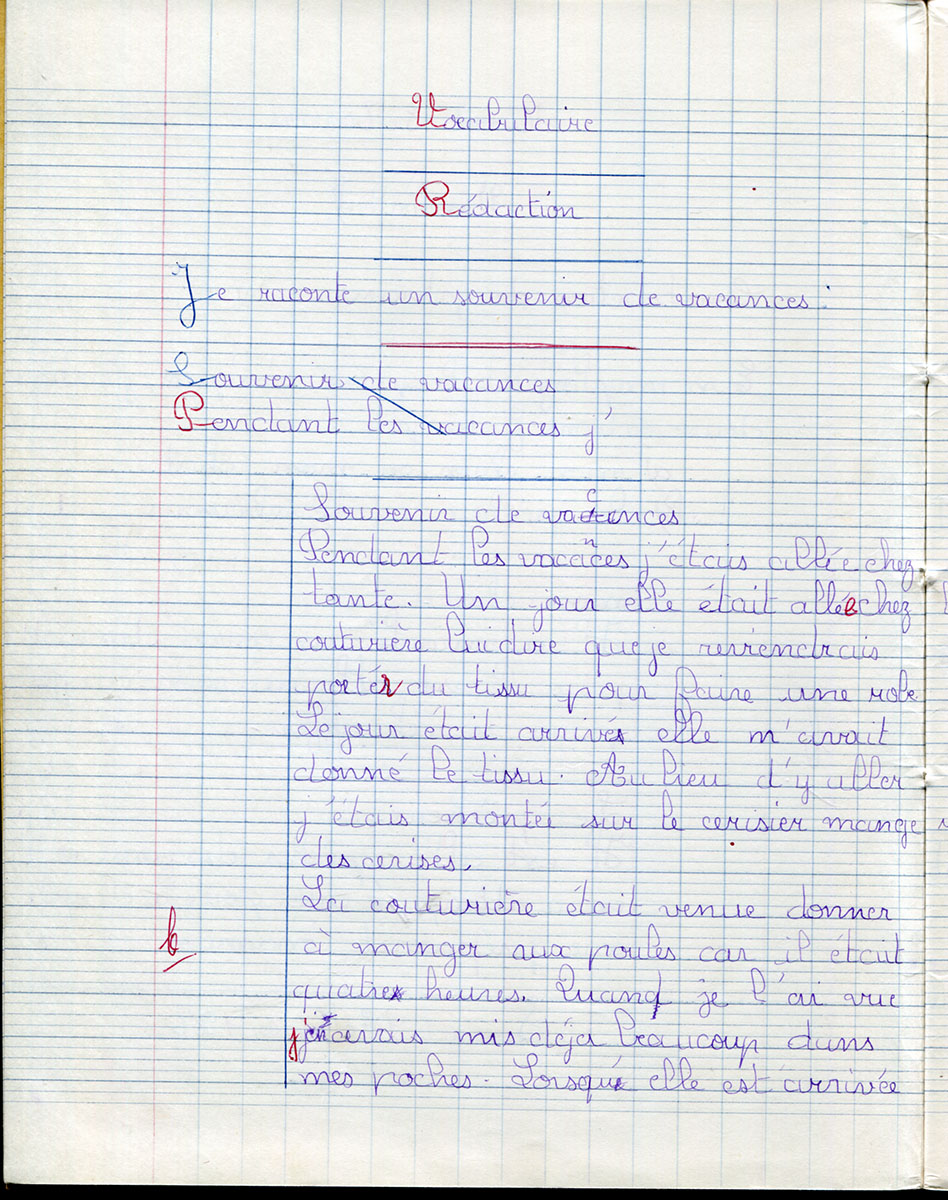 Vocabulaire
Rédaction
Je raconte un souvenir de vacances :
Souvenir de vacances
Pendant les vacances j'
Souvenir de vacances
Pendant les vacances j'étais allée chez
tante. Un jour elle était allée chez
couturière lui dire que je reviendrais
porter du tissu pour faire une robe
Le jour était arrivé elle m'avait
donné le tissu. Au lieu d'y aller
j'étais montée sur le cerisier manger
des cerises.
La couturière était venue donner
à manger aux poules car il était
quatre heures. Quand je l'ai vue
j'en avais mis déja beaucoup dans
mes poches. Lorsqu' elle est arrivée
b